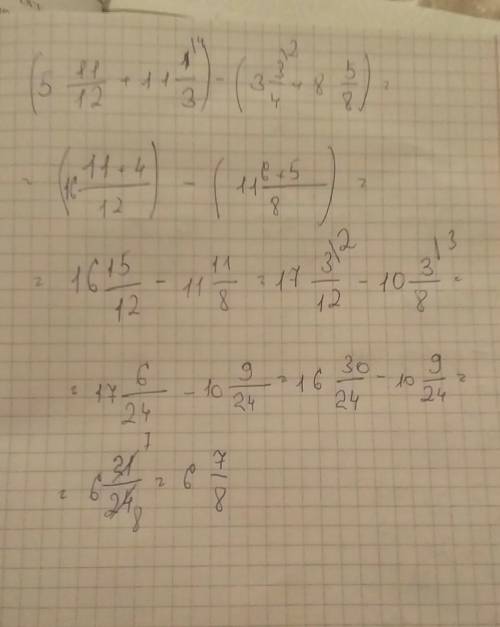 (5 11/12 + 11 1\4/3) - (3 3\2/4 + 8 5/8) =
= (16 11+4/12) - (11 6+5/8) =
= 16 15/12 - 11 11/8 = 17 3\2/12 - 10 3\3/8 =
= 17 6/24 - 10 9/24 = 16 30/24 - 10 9/24 =
= 6 21 7/24 8 = 6 7/8